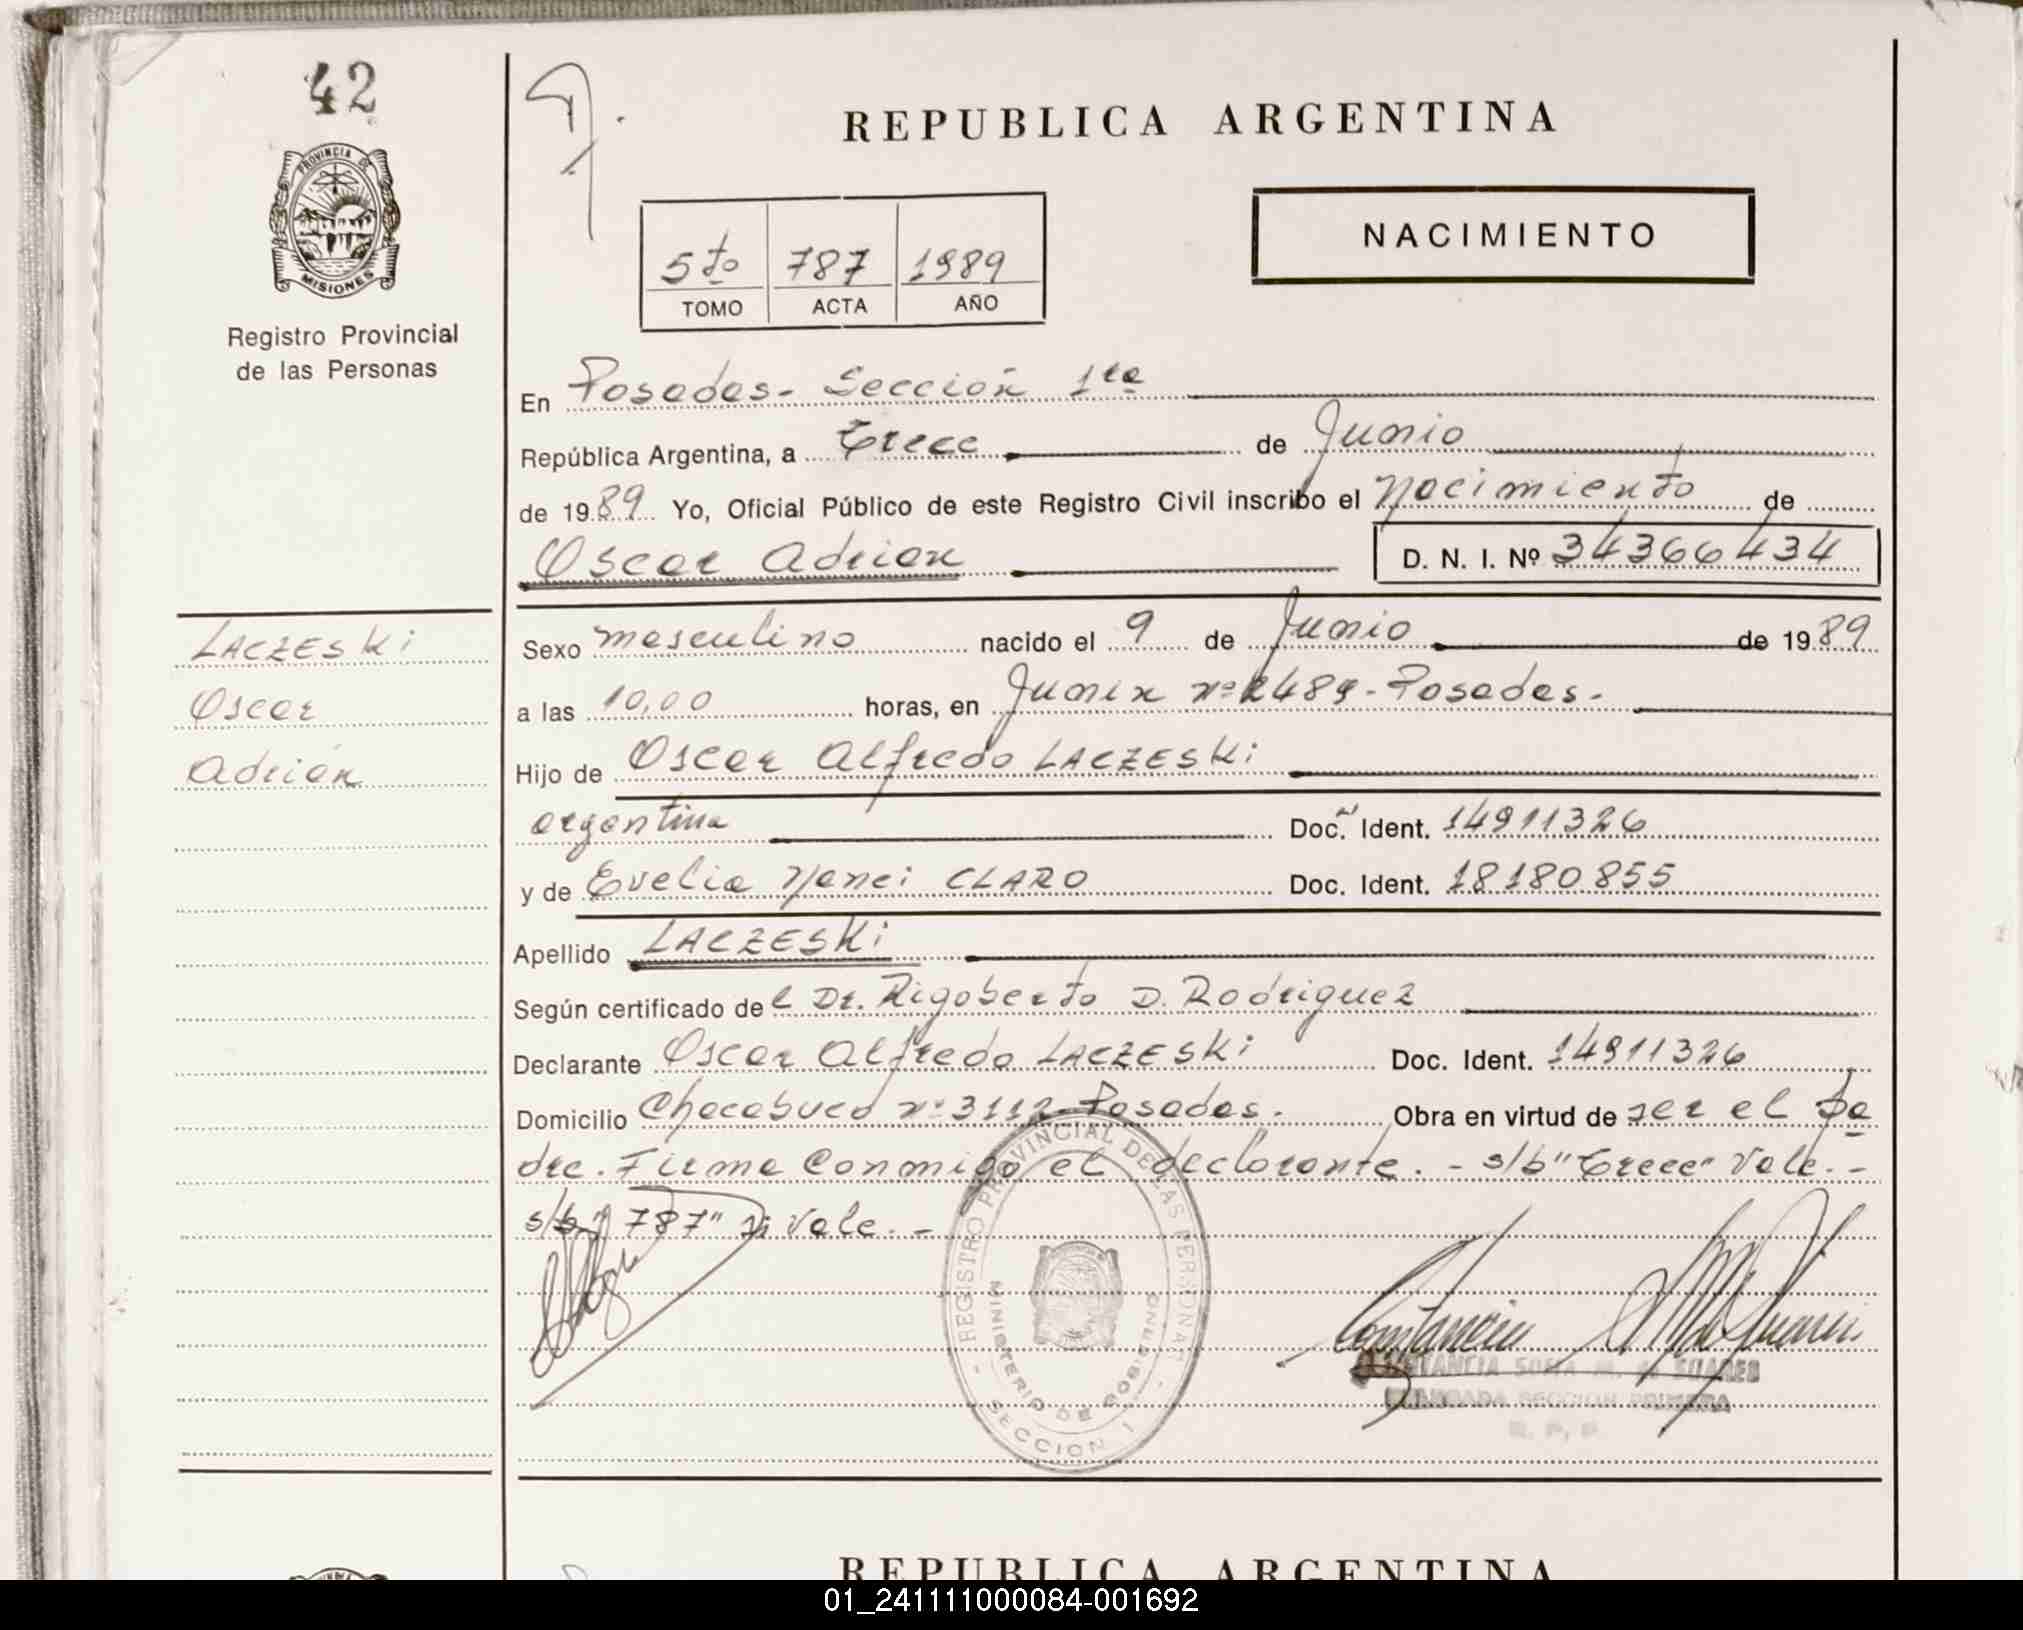 42
REPUBLICA ARGENTINA
PROVINCIA DE
MISIONES
Registro Provincial
de las Personas
NACIMIENTO
5to 787 1989
TOMO ACTA AÑO
En Posadas - Sección 1ra
República Argentina, a Trece de Junio
de 1989 Yo, Oficial Público de este Registro Civil inscribo el Nacimiento de
Oscar Adrian D. N. I. Nº 34366434
LACZESKi
Oscar
Adrián
Sexo masculino nacido el 9 de Junio de 1989
a las 10,00 horas, en Junin nº 2489 - Posadas.
Hijo de Oscar Alfredo LACZESKi
argentina Doc. Ident. 14911326
y de Evelia Nanci CLARO Doc. Ident. 18180855
Apellido LACZESKi
Según certificado del Dr. Rigoberto D. Rodriguez
Declarante Oscar Alfredo LACZESKi Doc. Ident. 14911326
Domicilio Chacabuco nº 3112 - Posadas. Obra en virtud de ser el pa
dre. Firma conmigo el declarante. - s/b "Trece" Vale. -
s/b "787" si Vale. -
REGISTRO PROVINCIAL DE LAS PERSONAS
MINISTERIO DE GOBIERNO
SECCION 1
SECCION PRIMERA
R. P. P.
REPUBLICA ARGENTINA
01_241111000084-001692